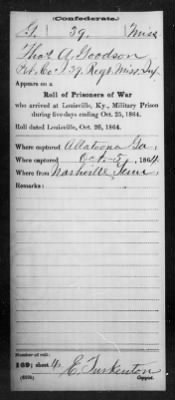 (Confederate.)
G. 39. Miss
Thos A. Goodson
Pvt. Co. 39 Regt. Miss. Inf.
Appears on a
Roll of Prisoners of War
who arrived at Louisville, Ky., Military Prison
during five days ending Oct. 25, 1864.
Roll dated Louisville, Oct. 26, 1864.
Where captured Allatoona Ga.
When captured Oct. 5, 1864
Where from Nashville Tenn
Remarks:
Number of roll:
169; sheet 4
E. Turkenton
Copyist.